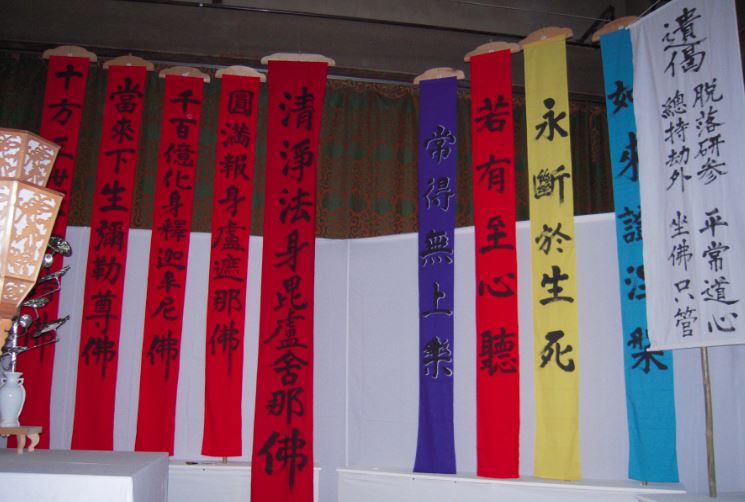 遺偈
脱落研参 平常道心
總持劫外 坐佛只管
如來證涅槃
永斷於生死
若有至心聽
常得無上樂
清淨法身毘盧舍那佛
圓滿報身盧遮那佛
千百億化身釋迦牟尼佛
當來下生彌勒尊佛
十方三世 佛